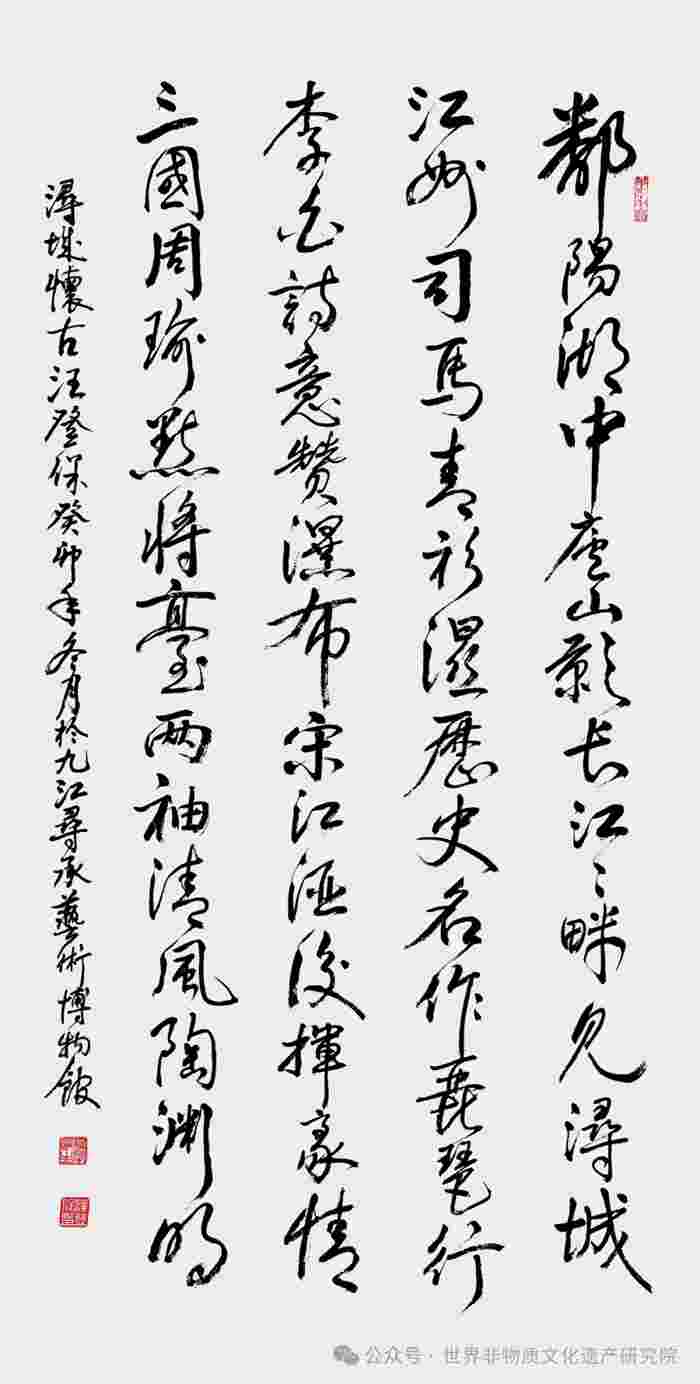 鄱陽湖中廬山影长江〻畔見潯城
江州司馬青衫濕歷史名作琵琶行
李白詩意贊瀑布宋江酒後揮豪情
三國周瑜點將臺两袖清風陶渊明
潯城懷古汪登保癸卯年冬月於九江尋承藝術博物館
公众号·世界非物质文化遗产研究院